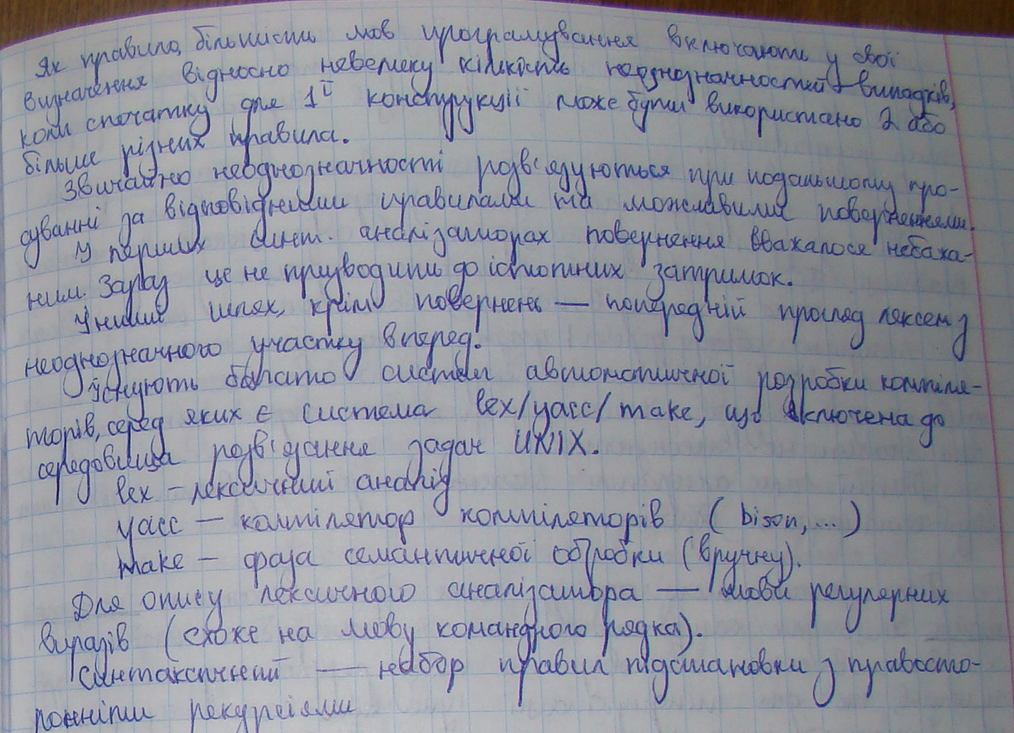 Як правило, більшість мов програмування включають у свої
визначення відносно невелику кількість неоднозначностей – випадків,
коли спочатку для 1ї конструкції може бути використано 2 або
більше різних правила.
Звичайно неоднозначності розв'язуються при подальшому про-
суванні за відповідними правилами та можливими поверненнями.
У перших синт. аналізаторах повернення вважалося небажа-
ним. Зараз це не призводить до істотних затримок.
Інший шлях, крім повернень — попередній прогляд лексем з
неоднозначного участку вперед.
Існують багато систем автоматичної розробки компіля-
торів, серед яких є система lex/yacc/make, що включена до
середовища розв'язання задач UNIX.
lex – лексичний аналіз
yacc — компілятор компіляторів (bison, ...)
make – фаза семантичної обробки (вручну).
Для опису лексичного аналізатора — мова регулярних
виразів (схоже на мову командного рядка).
Синтаксичний — набір правил підстановки з правосто-
ронніми рекурсіями